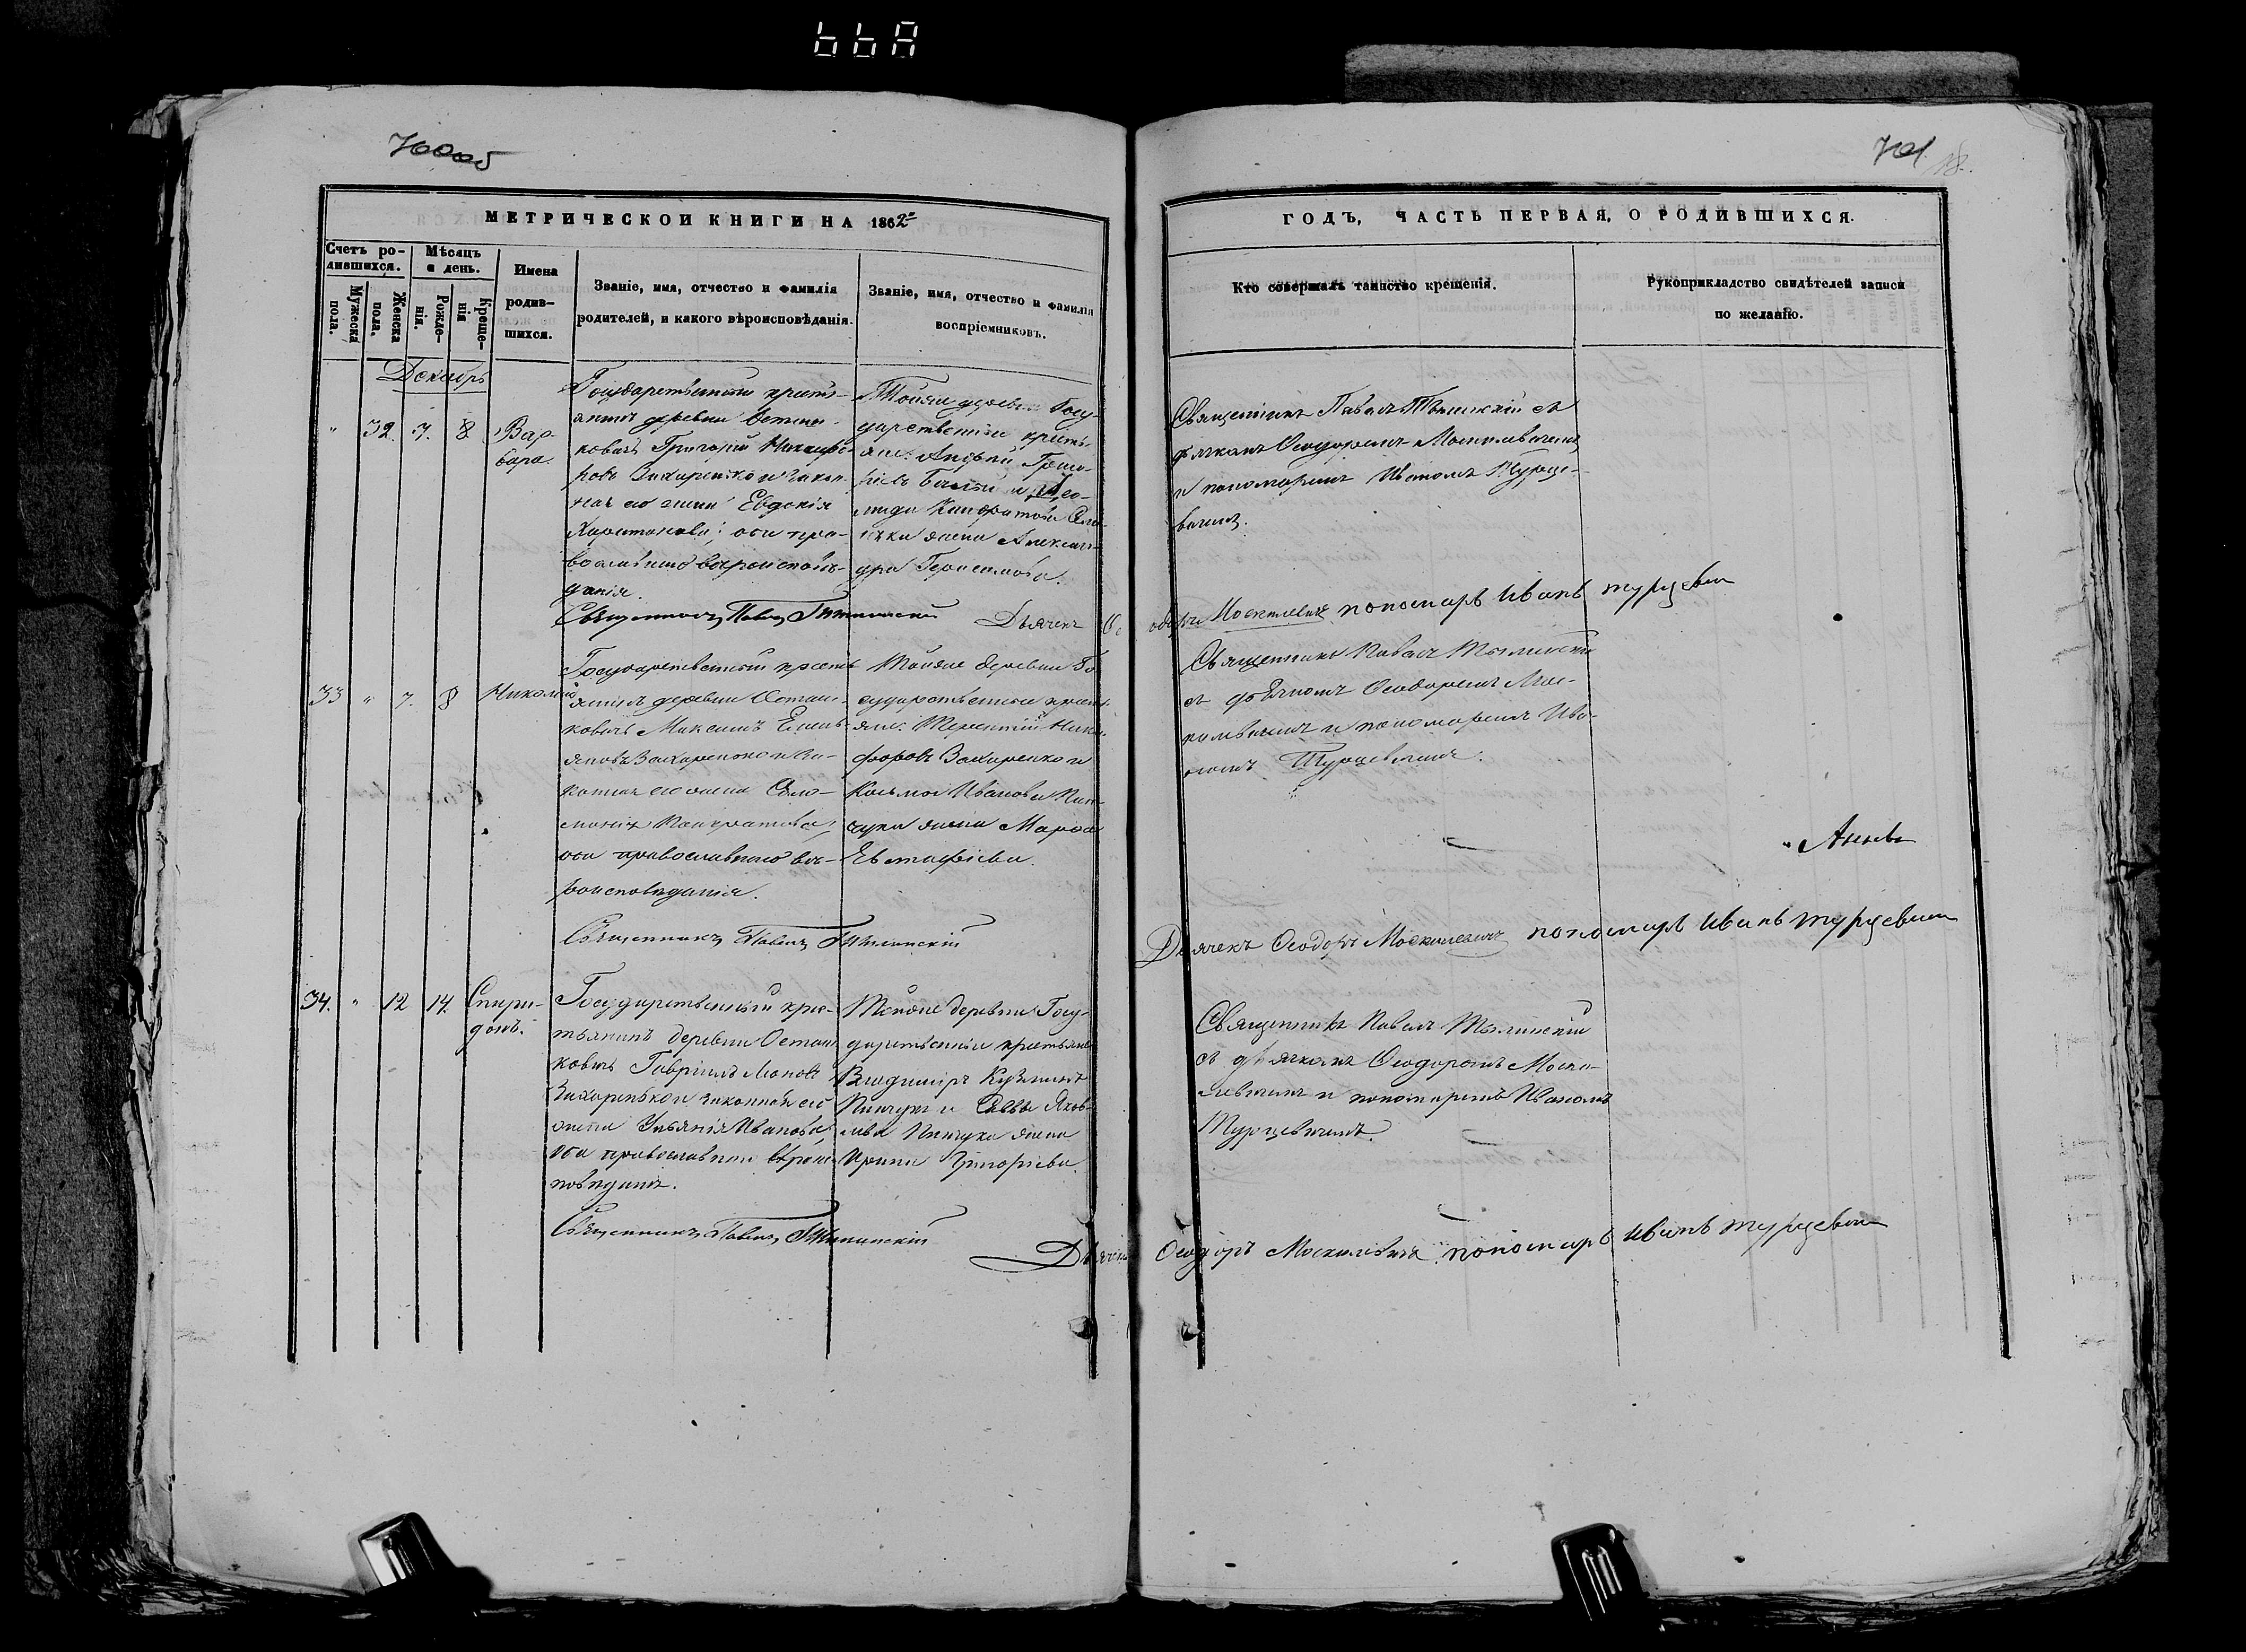 668
700об
701
18.
МЕТРИЧЕСКОЙ КНИГИ НА 1862й
ГОДЪ, ЧАСТЬ ПЕРВАЯ, О РОДИВШИХСЯ.
Счетъ ро-
дившихся.
Мужеска
пола.
Женска
пола.
Мѣсяцъ
и день.
Рожде-
нія.
Креще-
нія
Имена
родив-
шихся.
Званіе, имя, отчество и фамилія
родителей, и какого вѣроисповѣданія.
Званіе, имя, отчество и фамилія
воспріемниковъ.
Кто совершалъ таинство крещенія.
Рукоприкладство свидѣтелей записи
по желанію.
Декабрь
" 32. 7. 8
Вар-
вара.
Государственный кресть-
янинъ деревни Осташ-
ковичъ Григорій Никифо-
ровъ Захаренко и закон-
ная его жена Евдокія
Харитонова; оба пра-
вославнаго вѣроисповѣ-
данія.
Тойже деревни Госу-
дарственные кресть-
яне: Андрей Григо-
рьевъ
жена Алексан-
дра Герасимова.
Священникъ Павелъ Тылинскій съ
дьячкомъ Ѳеодоромъ Москалевичемъ
и пономаремъ Иваномъ Турце-
вичемъ.
Священникъ Павелъ Тылинскій Дьячекъ Ѳеодоръ Москалевичъ пономарь Иванъ Турцевич
33 " 7. 8
Николай
Государственный кресть-
янинъ деревни Осташ-
ковичъ Максимъ Емель-
яновъ Захаренко и за-
конная его жена Соло-
монія Панкратова;
оба православнаго вѣ-
роисповѣданія.
Тойже деревни Го-
сударственные кресть-
яне: Терентій Ники-
форовъ Захаренко и
Космы Иванова Пин-
чука жена Марѳа
Евстафіева.
Священникъ Павелъ Тылинскій
съ дьячкомъ Ѳеодоромъ Мос-
калевичемъ и пономаремъ Ива-
номъ Турцевичемъ.
Священникъ Павелъ Тылинскій
Дьячекъ Ѳеодоръ Москалевичъ пономарь Иванъ Турцевич
34. " 12 14.
Спири-
донъ.
Государственный крес-
тьянинъ деревни Осташ-
ковичъ Гавріилъ
Захаренко и законная его
жена Ульянія Иванова,
оба православнаго вѣроис-
повѣданія.
Тойже деревни Госу-
дарственные крестьяне
Владиміръ Кузьминъ
Пинчукъ и Саввы Яков-
лева Пинчука жена
Ирина Григорьева.
Священникъ Павелъ Тылинскій
съ дьячкомъ Ѳеодоромъ Моска-
левичемъ и пономаремъ Иваномъ
Турцевичемъ.
Священникъ Павелъ Тылинскій
Дьячекъ Ѳеодоръ Москалевичъ пономарь Иванъ Турцевич